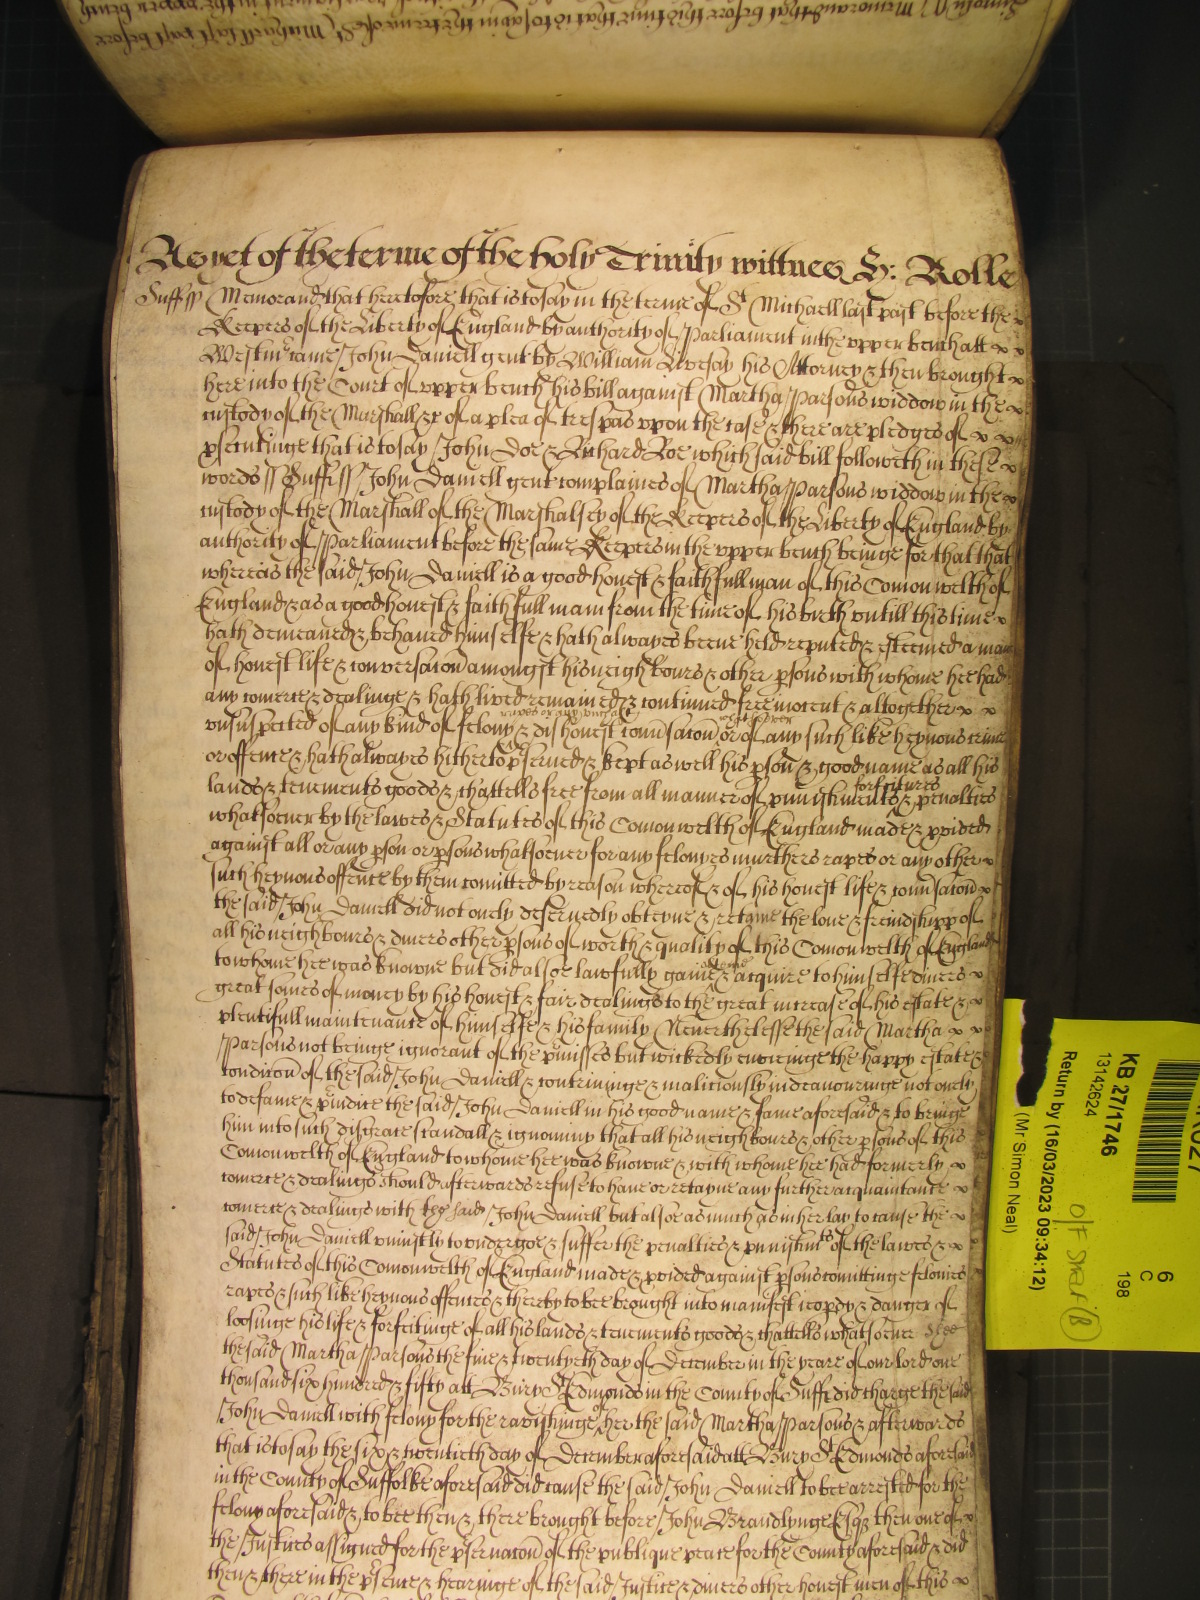 As yet of the terme of the holy Trinity wittnes H: Rolle
Suff ss Memorand that heretofore that is to say in the terme of St Michaell last past before the
Keepers of the Liberty of England by authority of Parliament in the upper bench att
Westm came John Daniell gent by William Livesay his Attorney & then brought
here into the Court of upper bench his bill against Martha Parsons widdow in the
custody of the Marshall &c of a plea of trespas upon the case & there are pledges of
psecutinge that is to say John Doe & Richard Roe which said bill followeth in these
words ss Suff ss John Daniell gent complaines of Martha Parsons widdow in the
custody of the Marshall of the Marshalsey of the Keepers of the Liberty of England by
authority of Parliament before the same Keepers in the upper bench beinge for that that
whereas the said John Daniell is a good honest & faithfull man of this Comon welth of
England & as a good honest & faithfull man from the time of his birth untill this time
hath demeaned & behaued himselfe & hath alwayes beene held reputed & esteemed a man
of honest life & conversacon amongst his neighbours & other psons with whome hee had
any comerce & dealinge & hath lived remained & continued free inocent & altogether
unsuspected of any kind of felony & dishonest conusacon or of any such like heynous crime
or offence & hath alwayes hitherto pserued & kept as well his pson & good name as all his
lands & tenements goods & chattells free from all manner of punishments forfeitures & penalties
whatsoeuer by the lawes & Statutes of this Comon welth of England made & pvided
against all or any pson or psons whatsoeuer for any felonyes murthers rapes or any other
such heynous offence by them comitted by reason whereof & of his honest life & conusacon
the said John Daniell did not onely deseruedly obteyne & retayne the loue & freindshipp of
all his neighbours & diuers other psons of worth & quality of this Comon welth of England
to whome hee was knowne but did alsoe lawfully gaine & acquire to himselfe diuers
great somes of money by his honest & fair dealings to the great increase of his estate &
plentifull maintenance of himselfe & his family Neuerthelesse the said Martha
Parsons not beinge ignorant of the pmisses but wickedly envieinge the happy estate &
condicon of the said John Daniell & contriuinge & maliciously indeauouringe not onely
to defame & piudice the said John Daniell in his good name & fame aforesaid & to bringe
him into such disgrace scandall & ignominy that all his neighbours & other psons of this
Comonwelth of England to whome hee was knowne & with whome hee had formerly
comerce & dealings should afterwards refuse to haue or retayne any further acquaintance
comerce & dealings with the said John Daniell but alsoe as much as in her lay to cause the
said John Daniell uniustly to undergoe & suffer the penalties & punishmts of the lawes &
Statutes of this Comonwelth of England made & pvided against psons comittinge felonies
rapes & such like heynous offences & thereby to bee brought into manifest ieopdy & danger of
loosinge his life & forfeitinge of all his lands & tenements goods & chattells whatsoeuer Shee
the said Martha Parsons the fiue & twentyeth day of December in the yeare of our lord one
thousand six hundred & fifty att Bury St Edmonds in the County of Suff did charge the said
John Daniell with felony for the ravishinge of her the said Martha Parsons & afterwards
that is to say the six & twentieth day of December aforesaid att Bury St Edmonds aforesaid
in the County of Suffolke aforesaid did cause the said John Daniell to bee arrested for the
felony aforesaid & to bee then & there brought before John Brandlynge Esqr then one of
the Justices assigned for the pseruacon of the publique peace for the County aforesaid & did
then & there in the psence & hearinge of the said Justice & diuers other honest men of this
KB 27/1746
13142624
Return by (16/03/2023 09:34:12)
(Mr Simon Neal)
6
C
198
O/F Shelf (B)